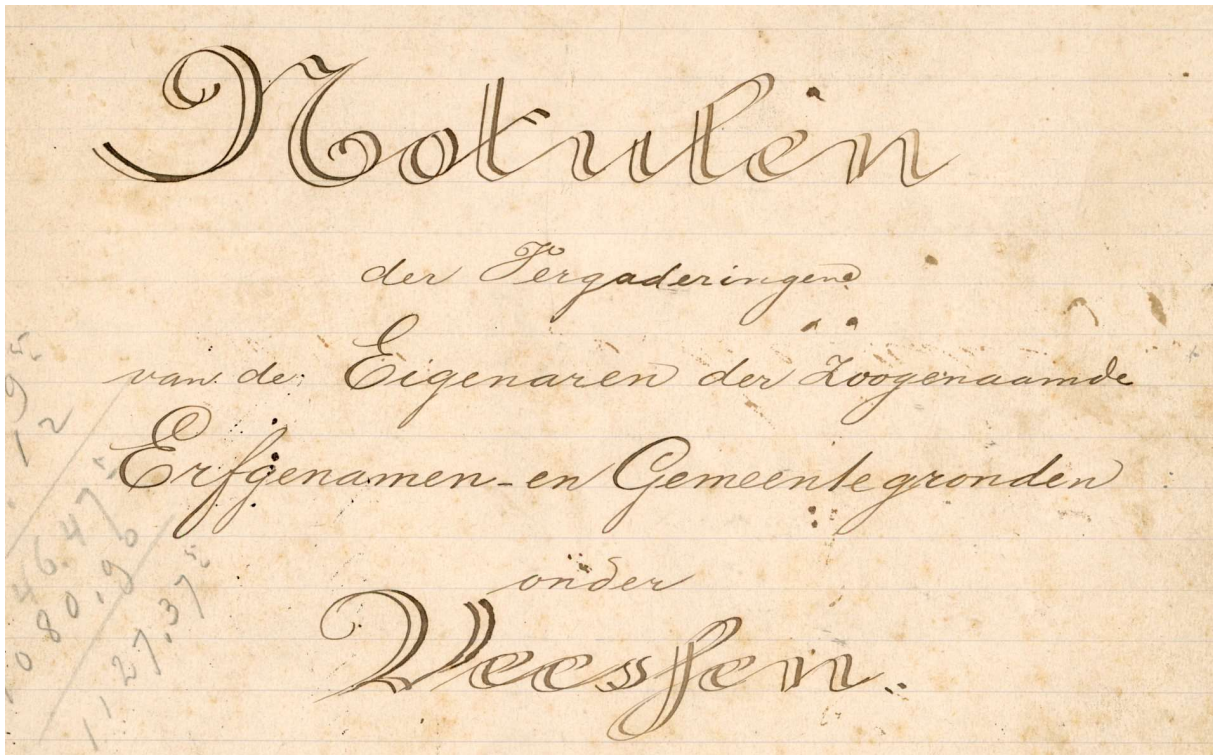 Notulen
der Vergaderingen
van de Eigenaren der Zoogenaamde
Erfgenamen-en Gemeentegronden
onder
Veessen.
12
1127.37